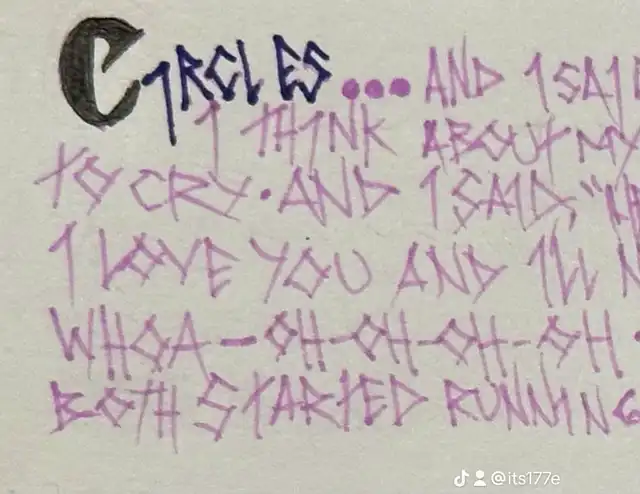 CIRCLES... AND I SAID
I THINK ABOUT MY
TO CRY. AND I SAID, "
I LOVE YOU AND ILL N
WHOA-OH-OH-OH-OH
BOTH STARTED RUNNING
@its177e